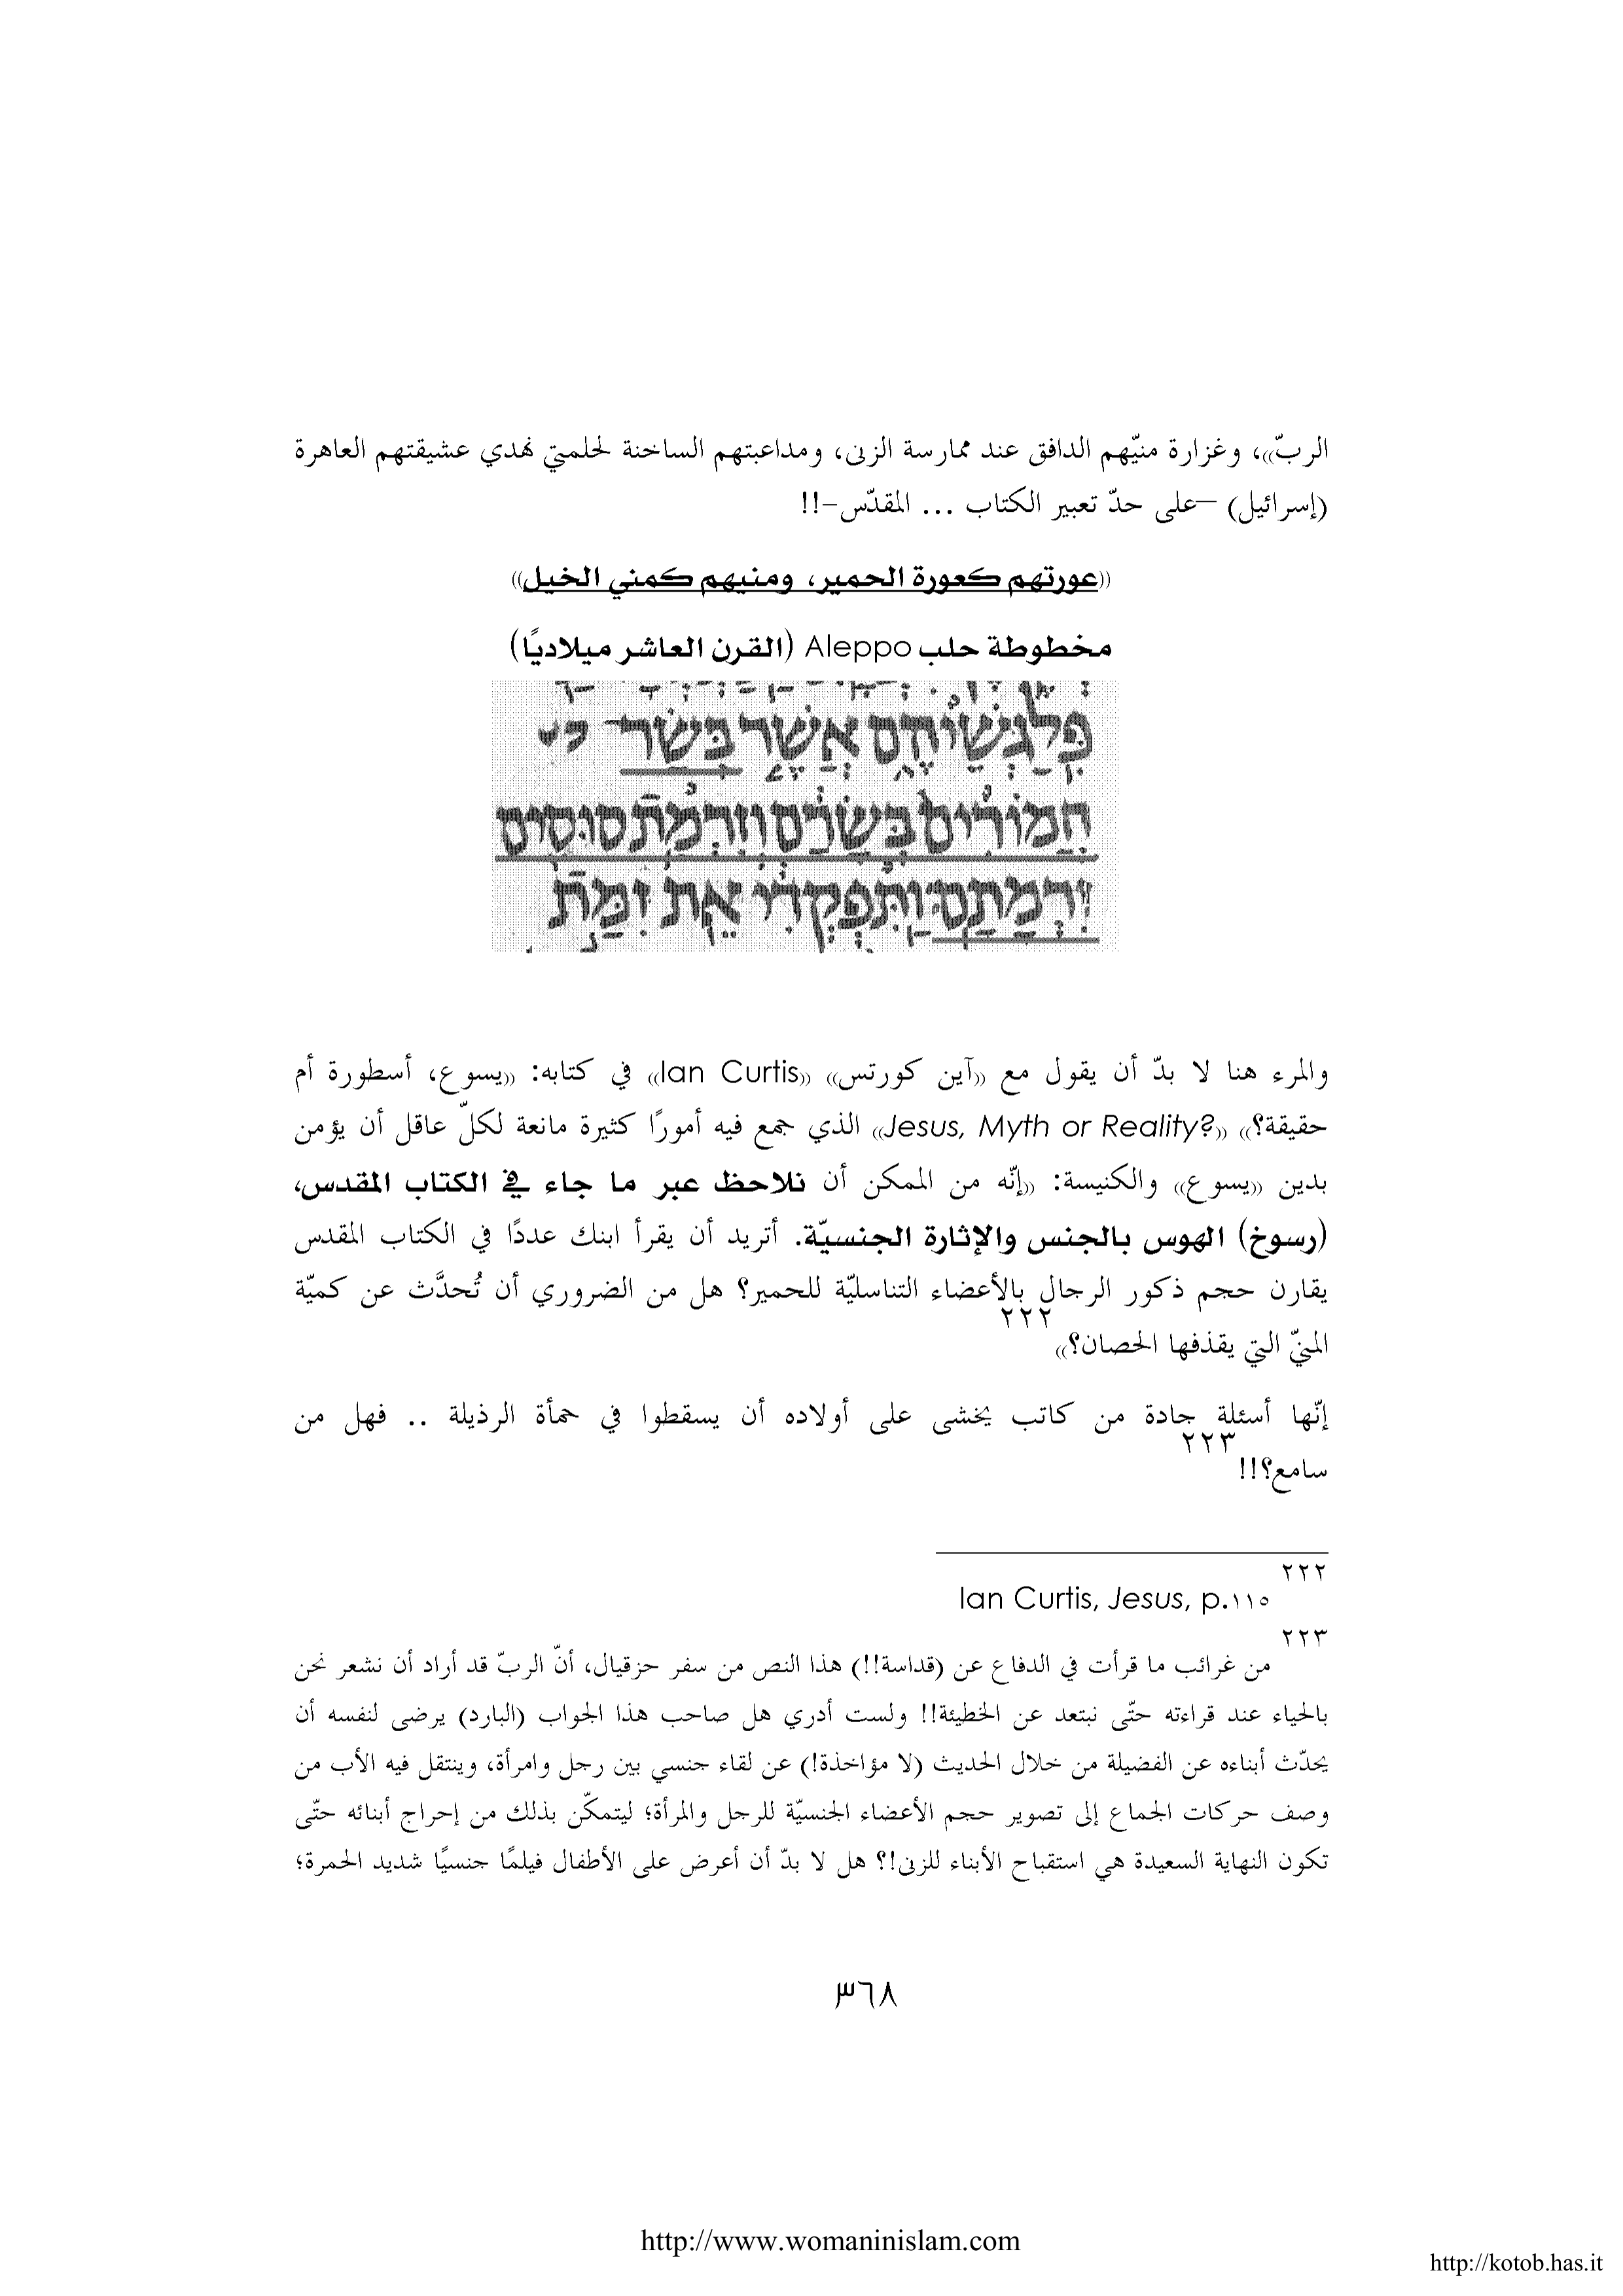 الربّ»، وغزارة منيّهم الدافق عند ممارسة الزنى، ومداعبتهم الساخنة لحلمتي نهدي عشيقتهم العاهرة
(إسرائيل) –على حدّ تعبير الكتاب ... المقدّس-!!
«عورتهم كعورة الحمير، ومنيهم كمني الخيل»
مخطوطة حلب Aleppo (القرن العاشر ميلاديًا)
פלגשיהם אשר בשר
חמורים בשרם וזרמת סוסים
זרמתם: ותפקדי את זמת
والمرء هنا لا بدّ أن يقول مع «آين كورتس» «Ian Curtis» في كتابه: «يسوع، أسطورة أم
حقيقة؟» «Jesus, Myth or Reality?» الذي جمع فيه أمورًا كثيرة مانعة لكلّ عاقل أن يؤمن
بدين «يسوع» والكنيسة: «إنّه من الممكن أن نلاحظ عبر ما جاء في الكتاب المقدس،
(رسوخ) الهوس بالجنس والإثارة الجنسيّة. أتريد أن يقرأ ابنك عددًا في الكتاب المقدس
يقارن حجم ذكور الرجال بالأعضاء التناسليّة للحمير؟ هل من الضروري أن تُحدَّث عن كميّة
المنيّ التي يقذفها الحصان؟»٢٢٢
إنّها أسئلة جادة من كاتب يخشى على أولاده أن يسقطوا في حمأة الرذيلة .. فهل من
سامع؟!!٢٢٣
٢٢٢
Ian Curtis, Jesus, p.١١٥
٢٢٣
من غرائب ما قرأت في الدفاع عن (قداسة!!) هذا النص من سفر حزقيال، أنّ الربّ قد أراد أن نشعر نحن
بالحياء عند قراءته حتّى نبتعد عن الخطيئة!! ولست أدري هل صاحب هذا الجواب (البارد) يرضى لنفسه أن
يحدّث أبناءه عن الفضيلة من خلال الحديث (لا مؤاخذة!) عن لقاء جنسي بين رجل وامرأة، وينتقل فيه الأب من
وصف حركات الجماع إلى تصوير حجم الأعضاء الجنسيّة للرجل والمرأة؛ ليتمكّن بذلك من إحراج أبنائه حتّى
تكون النهاية السعيدة هي استقباح الأبناء للزنى!؟ هل لا بدّ أن أعرض على الأطفال فيلمًا جنسيًا شديد الحمرة؛
٣٦٨
http://www.womaninislam.com
http://kotob.has.it